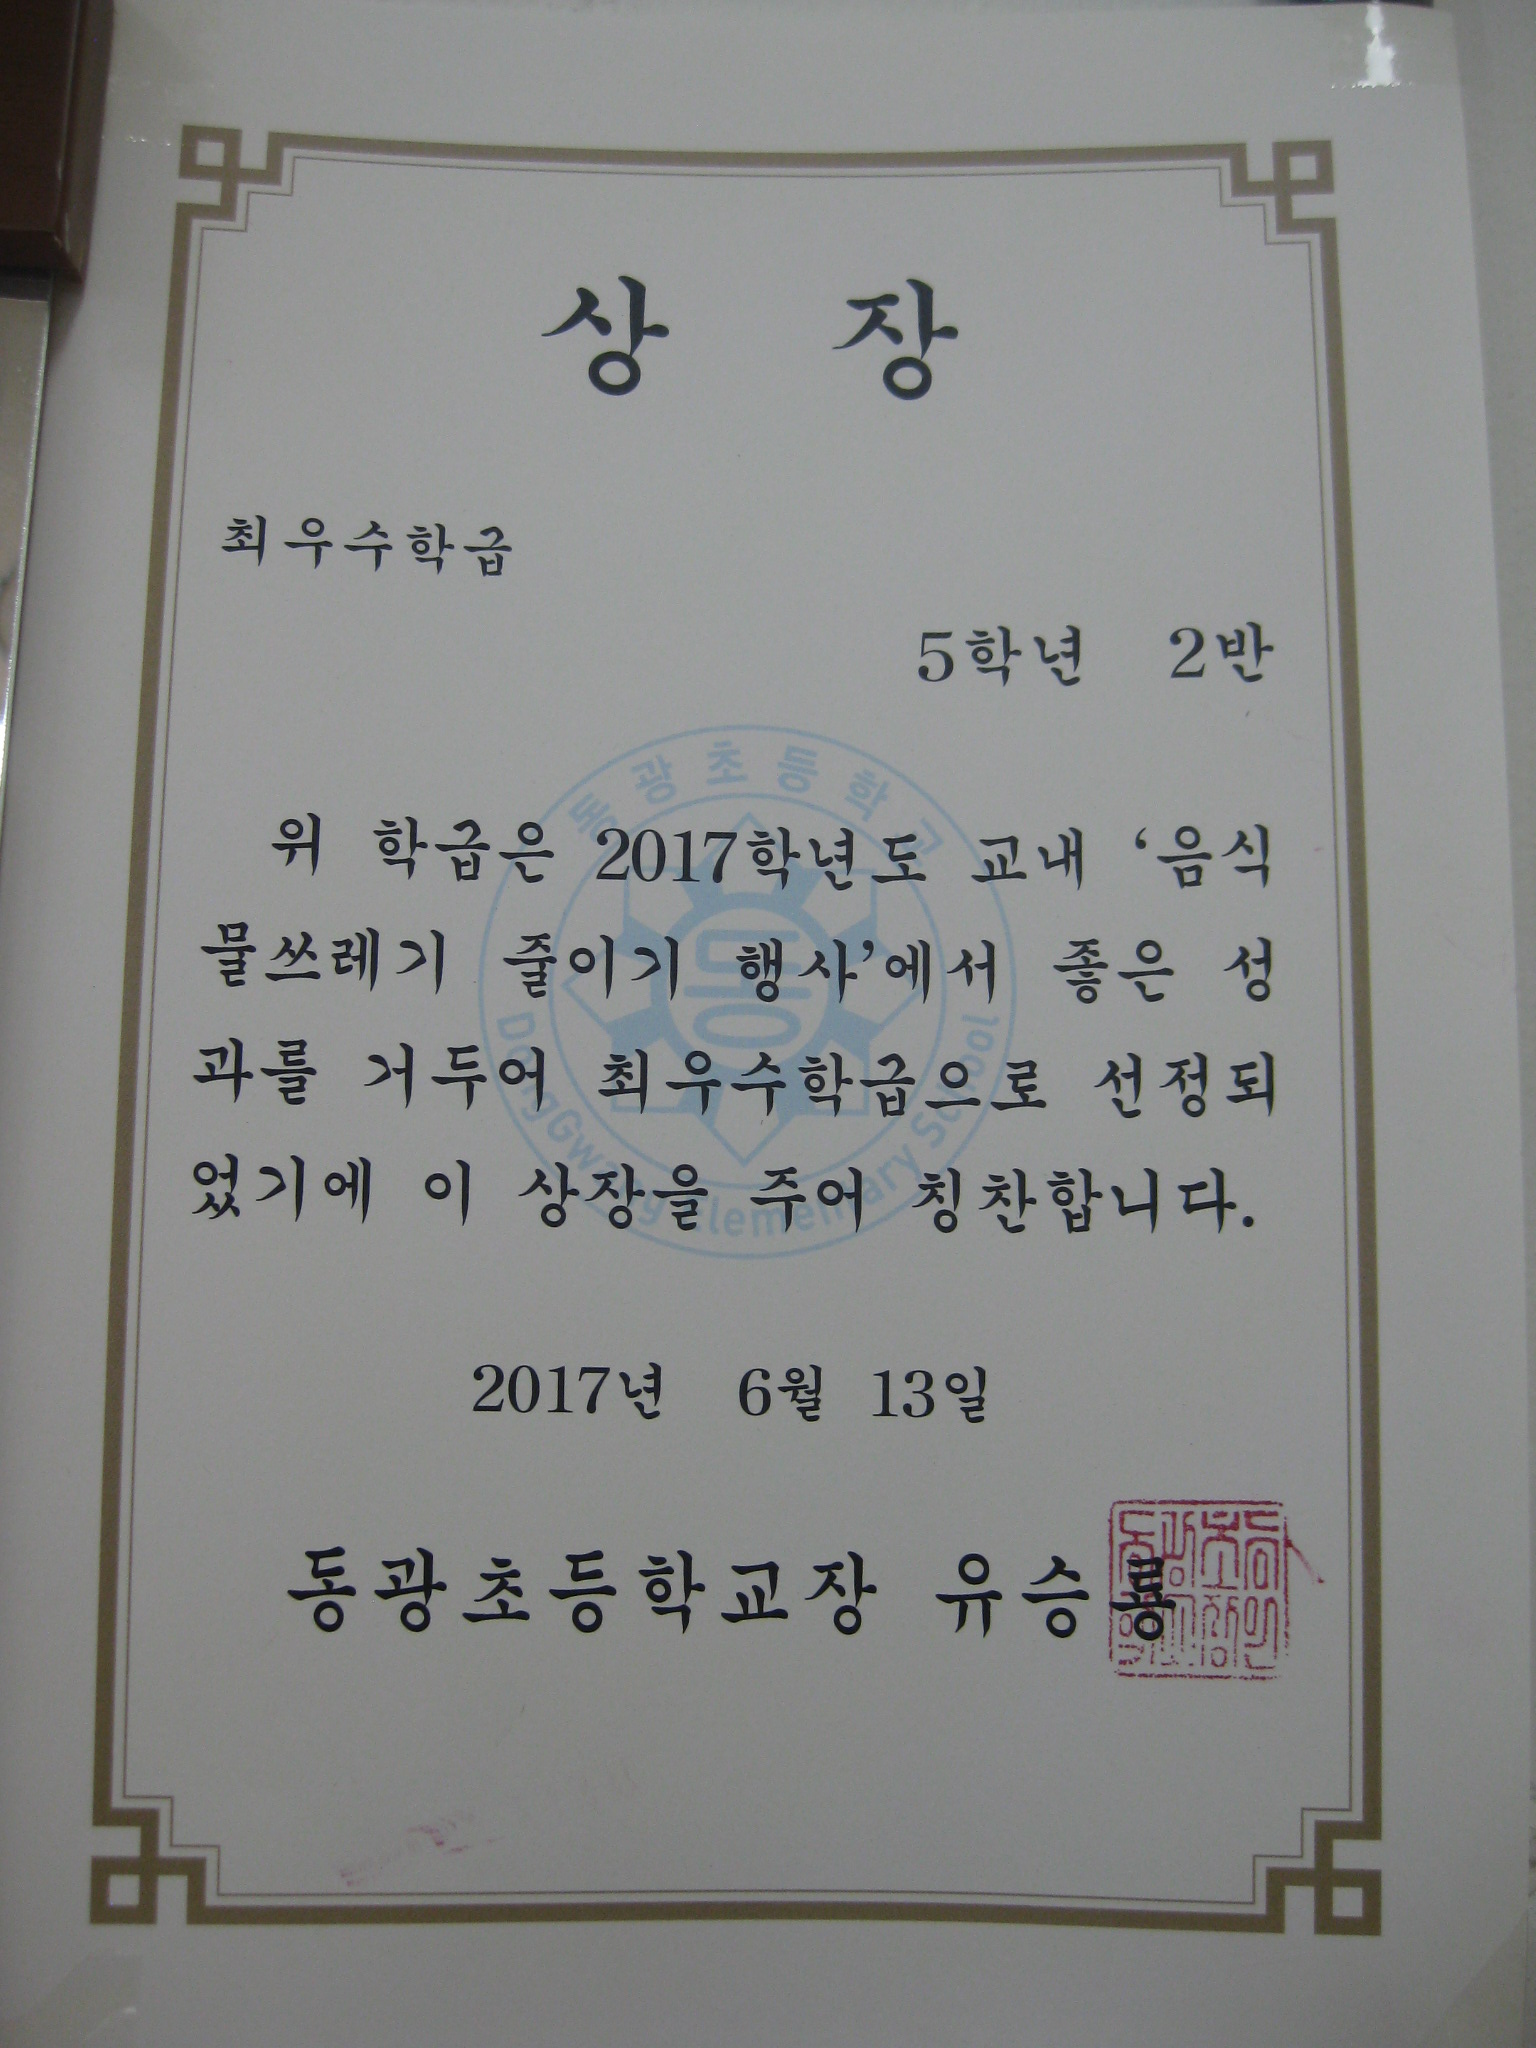 상 장
최우수학급
5학년 2반
위 학급은 2017학년도 교내 ‘음식
물쓰레기 줄이기 행사’에서 좋은 성
과를 거두어 최우수학급으로 선정되
었기에 이 상장을 주어 칭찬합니다.
동광초등학교
DongGwang Elementary School
동
2017년 6월 13일
동광초등학교장 유승룡
동광초등
학교장인